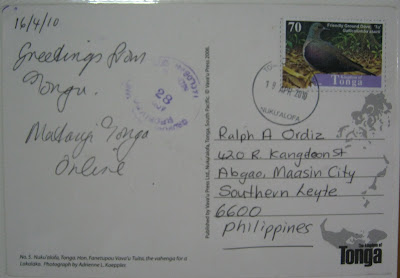 16/4/10
Greetings from
Tonga.
Matangi Tonga
Online
No 5. Nuku'alofa, Tonga: Hon.
Lakalaka. Photograph by Adrienne L. Kaeppler.
Published by Vava'u Press Ltd, Nuku'alofa, Tonga, South Pacific. © Vava'u Press 2006.
28
70
Friendly Ground Dove
Tonga
APR 2010
NUKU'ALOFA
Ralph A Ordiz
420 R. Kangdoon St
Abgao, Maasin City
Southern Leyte
6600
Philippines
The Kingdom of
Tonga